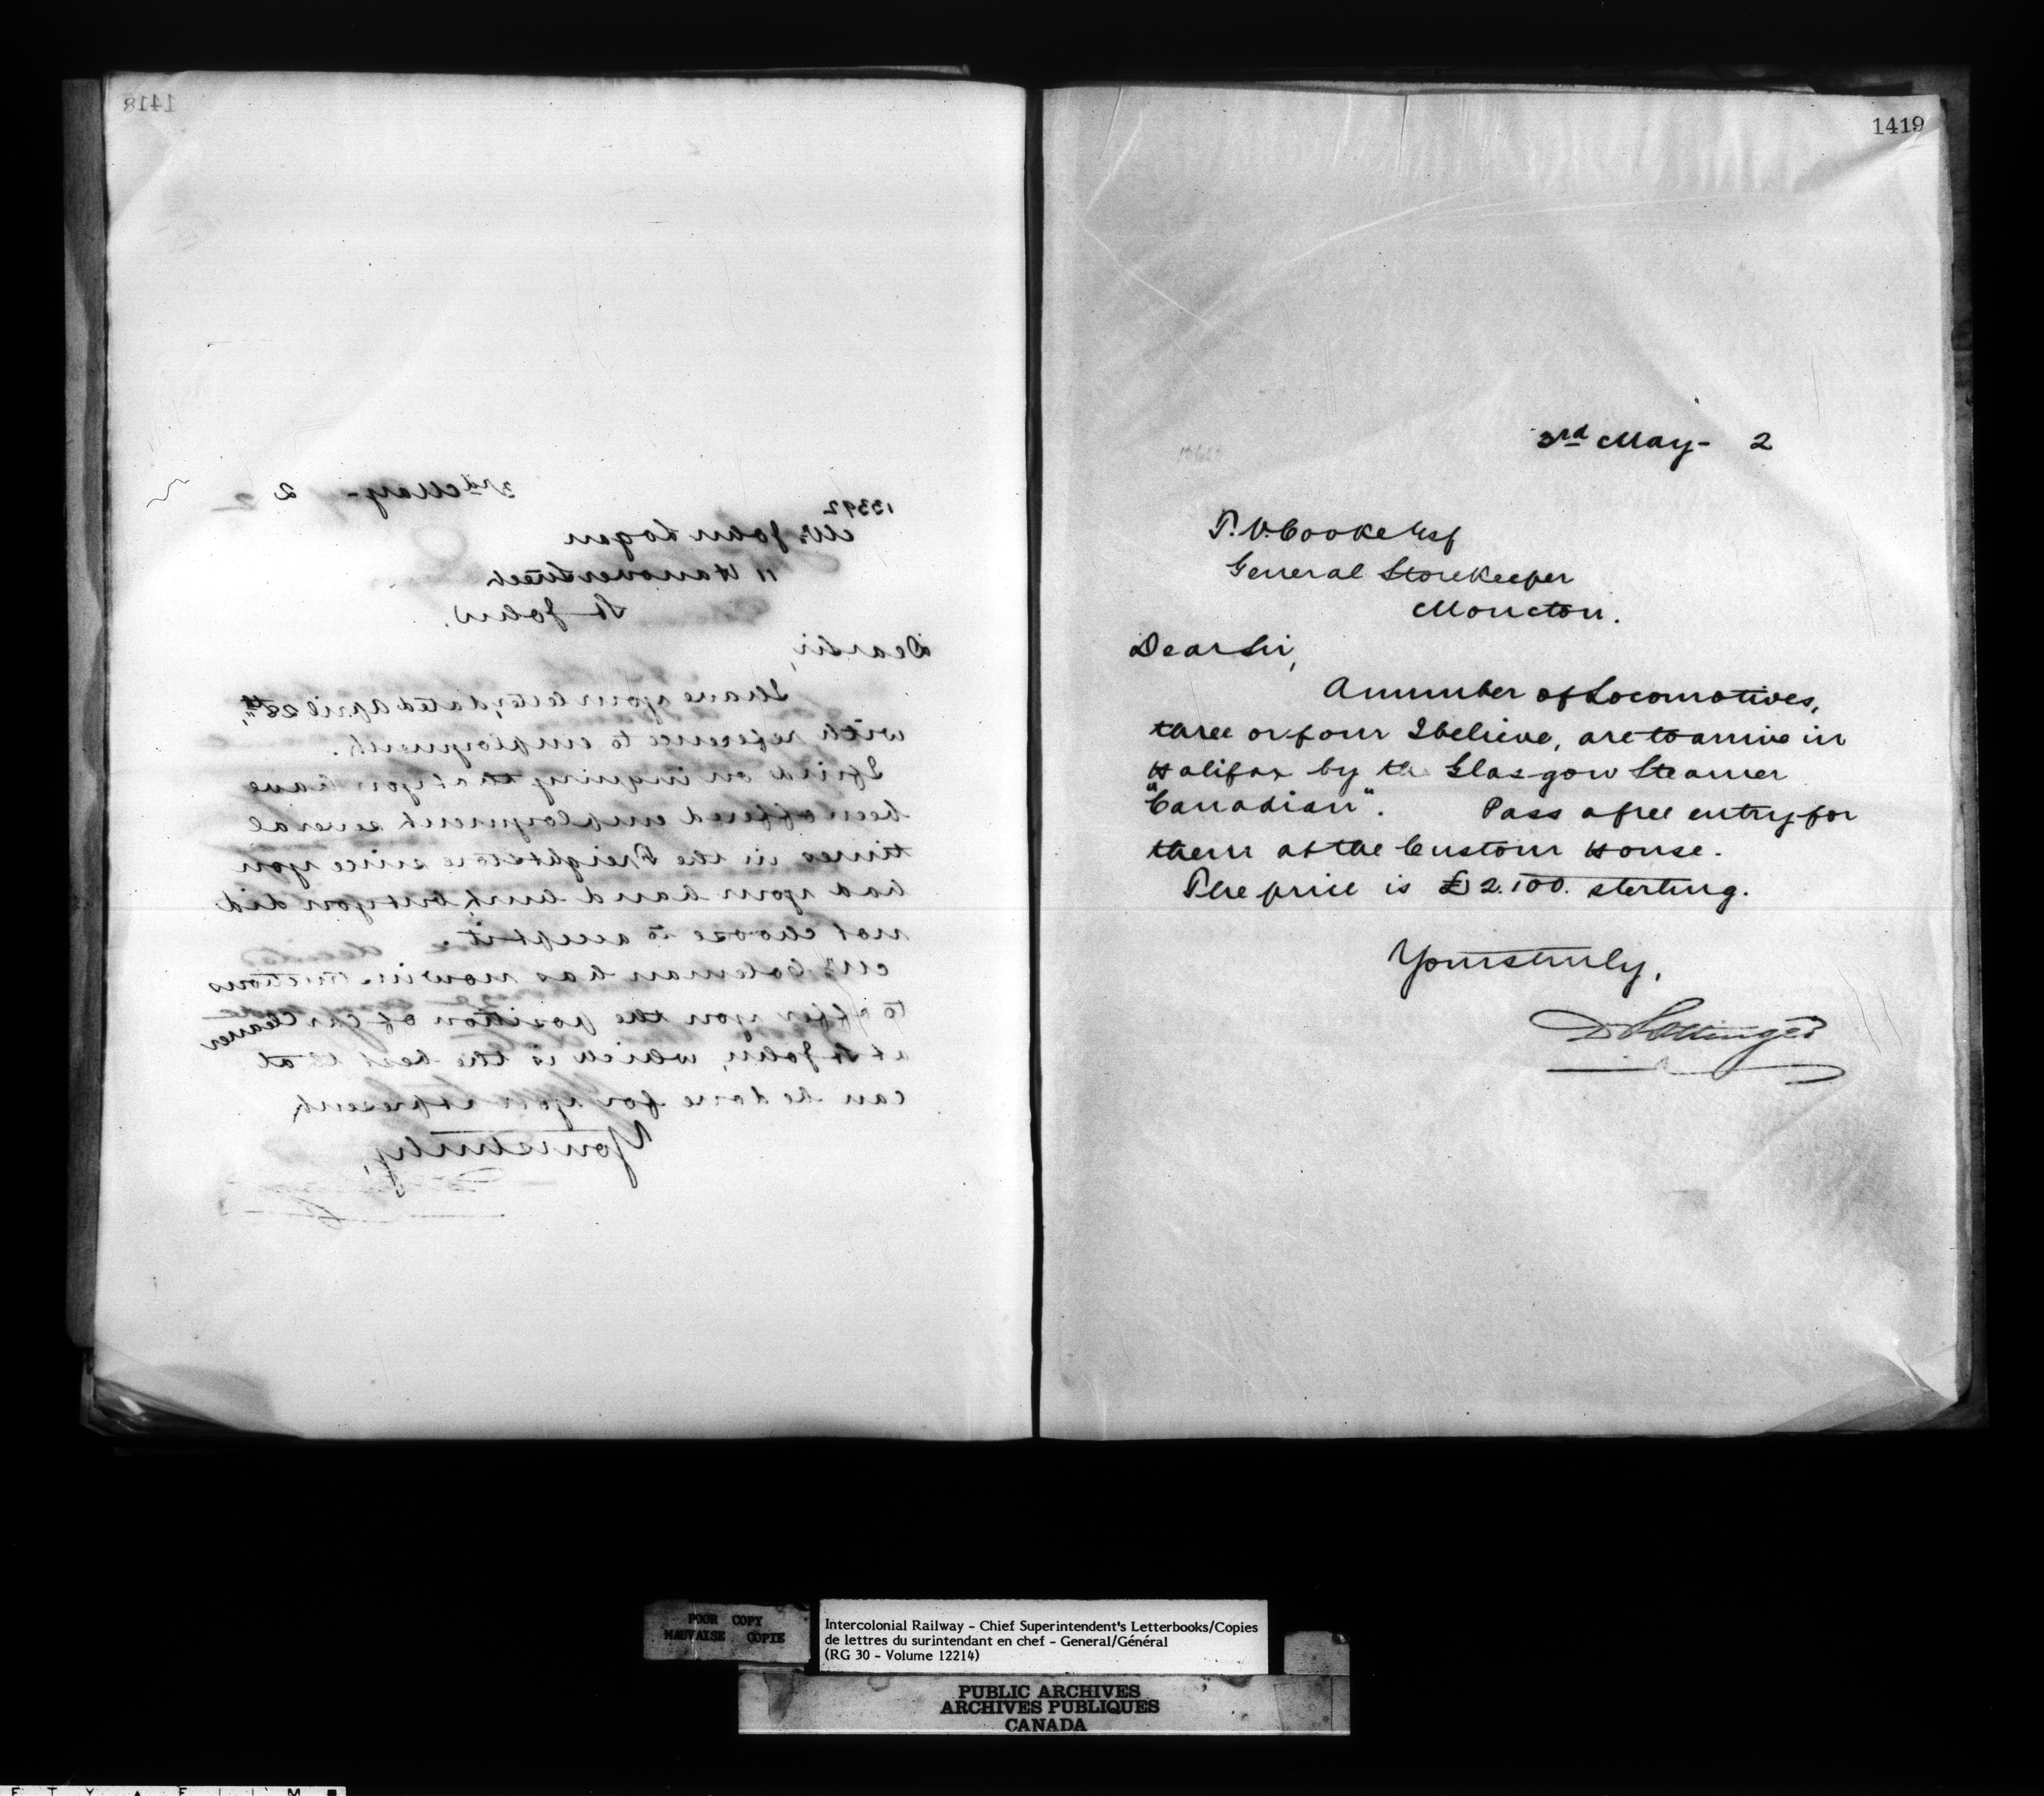 1418
3rd May- 2
13392
Mr. John Logan
11 Hanover Street
St John.
Dear Sir,
I have your letter, dated April 28th,
with reference to employment.
I find on inquiry that you have
been offered employment several
times in the Freight store since you
had your hand hurt, but you did
not choose to accept it.
Mr. Coleman has now instructions
to offer you the position of Car Cleaner
at St John, which is the best that
can be done for you at present,
Yours truly,
1419
3rd May- 2
T. V. Cooke Esq
General Storekeeper
Moncton.
Dear Sir,
A number of Locomotives,
three or four I believe, are to arrive in
Halifax by the Glasgow Steamer
"Canadian". Pass a free entry for
them at the Custom House.
The price is £2.100. sterling.
Yours truly,
D Pottinger
POOR COPY
MAUVAISE COPIE
Intercolonial Railway - Chief Superintendent's Letterbooks/Copies
de lettres du surintendant en chef - General/Général
(RG 30 - Volume 12214)
PUBLIC ARCHIVES
ARCHIVES PUBLIQUES
CANADA